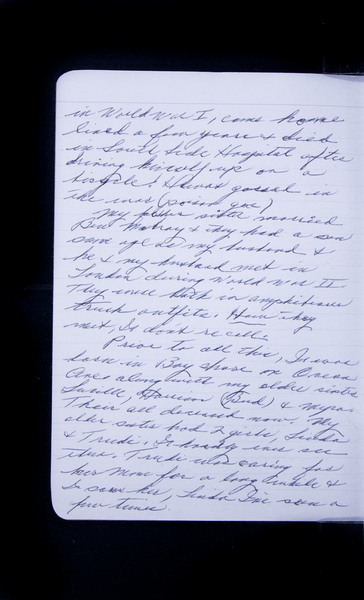 in World War I, came home
lived a few years & died
in South Side Hospital after
driving himself up on a
bicycle. He was gassed in
the war (poison gas)
My other sister married
Bud Mobray & they had a son
same age as my husband &
he & my husband met in
London during World War II
They were both in amphibious
truck outfits. How they
met, I don't recall.
Prior to all this, I was
born in Bay Shore on Ocean
Ave. along with my older sister
Lucille, (Bud) & Myra.
Their all deceased now. My
older sister had 2 girls, Linda
& Trudi. I hardly ever see
them. Trudi was caring for
her Mom for a long while &
I saw her, Linda I've seen a
few times.